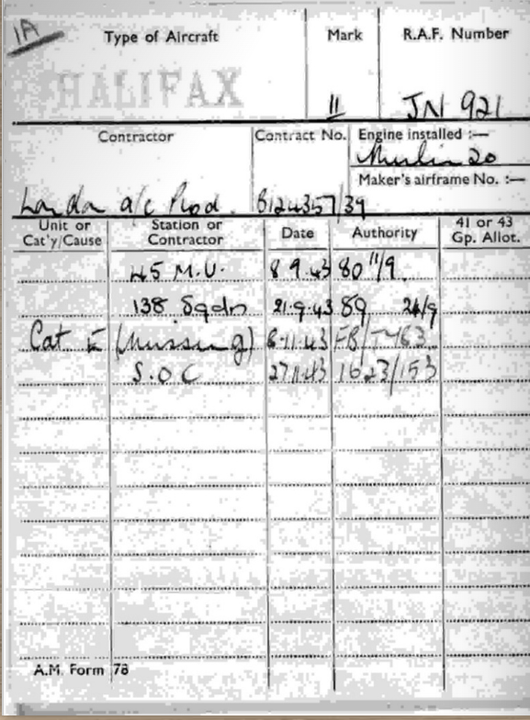 1A
Type of Aircraft Mark R.A.F. Number
HALIFAX II JN 921
Contractor Contract No. Engine installed :—
Merlin 20
Maker's airframe No. :—
London a/c Prod. B124357/39
Unit or Cat'y/Cause Station or Contractor Date Authority 41 or 43 Gp. Allot.
45 M.U. 8.9.43 80 11/9
138 Sqdn 21.9.43 89 24/9
Cat E (missing) 6.11.43 FB/T463
S.O.C 27.11.43 1623/153
A.M. Form 78